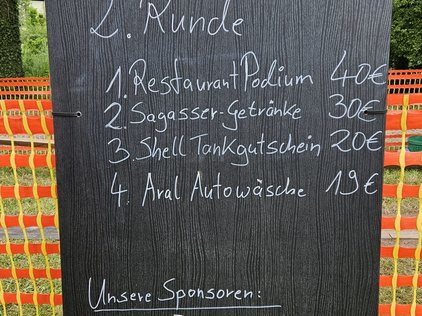 2. Runde
1. Restaurant Podium 40€
2. Sagasser-Getränke 30€
3. Shell Tankgutschein 20€
4. Aral Autowäsche 19€
Unsere Sponsoren: